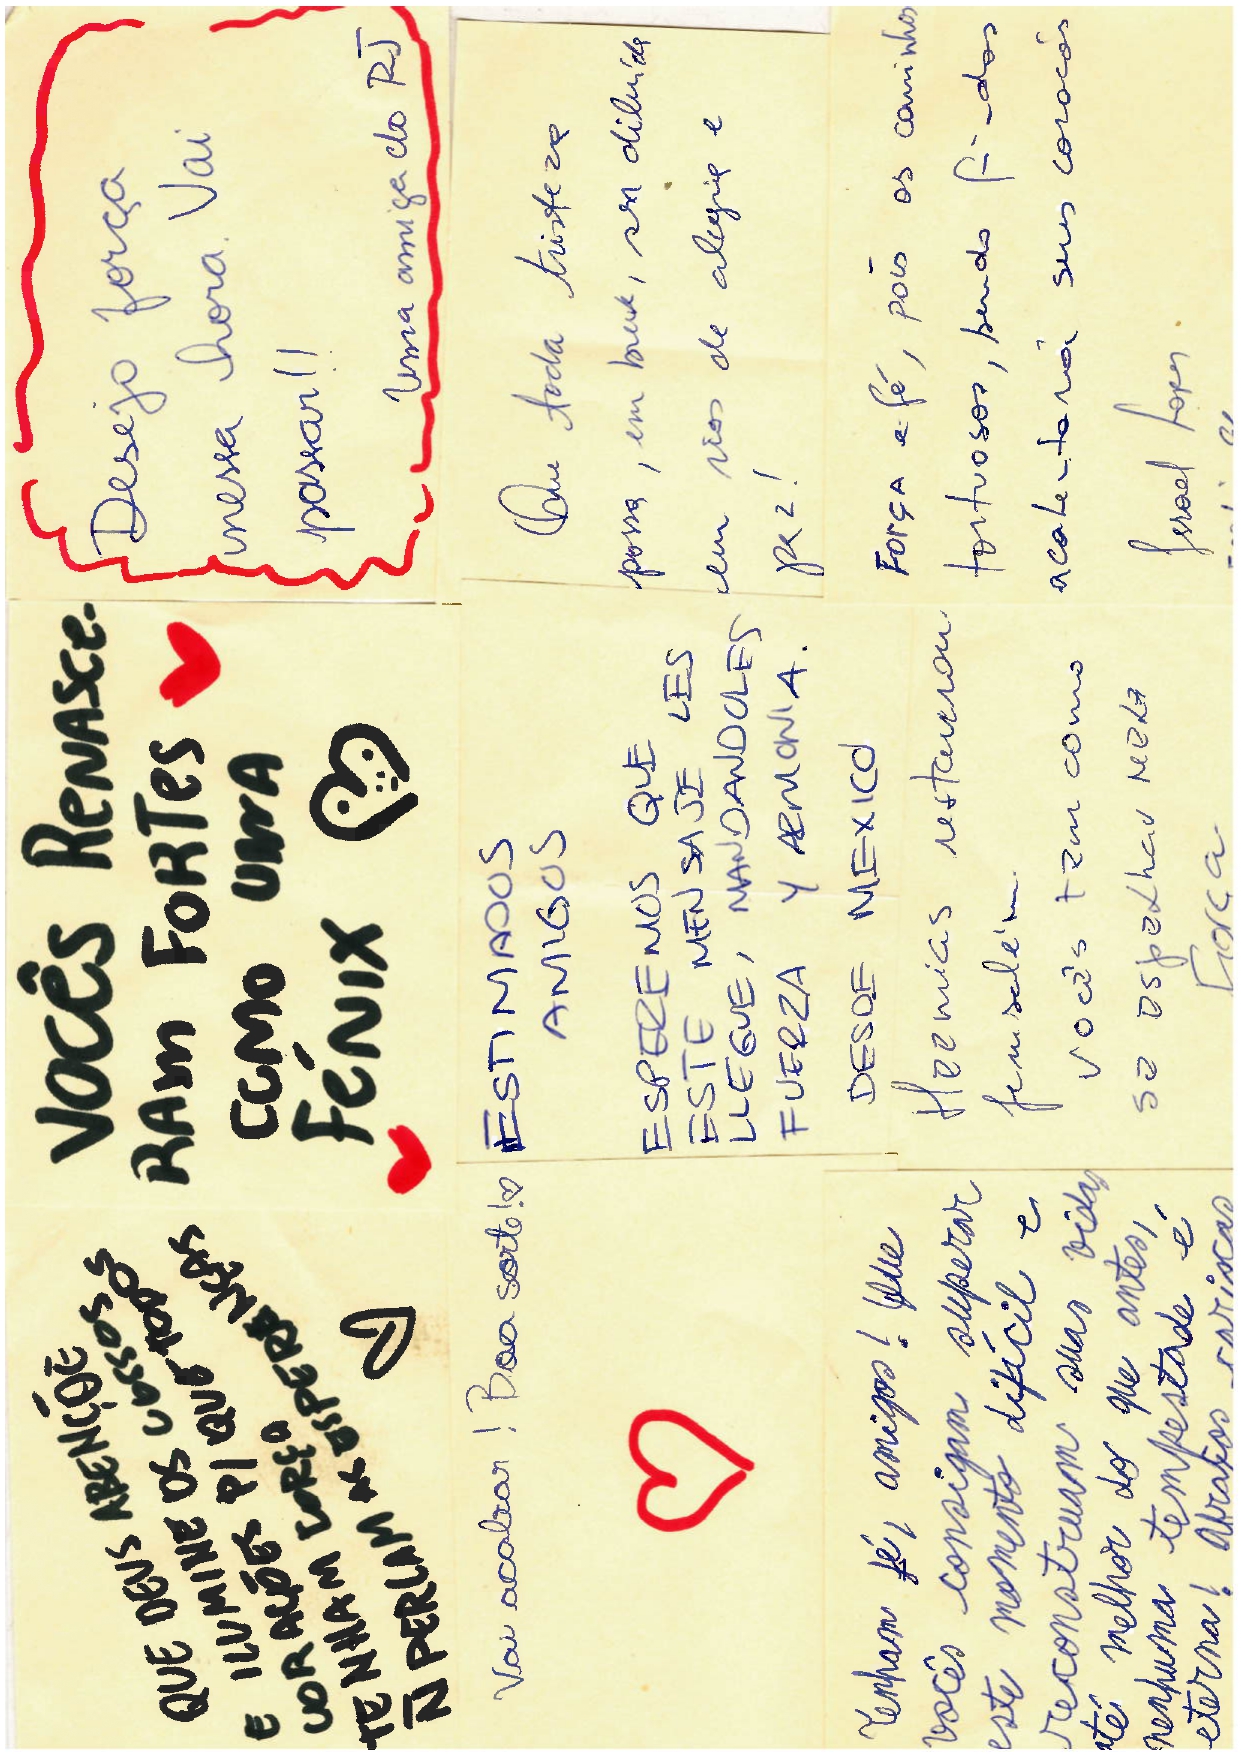 QUE DEUS ABENÇÕE
E ILUMINE OS VOSSOS
CORAÇÕES P/ QUE TODOS
TENHAM FORÇA
Ñ PERCAM AS ESPERANÇAS
VOCÊS RENASCE-
RAM FORTES
COMO UMA
FÊNIX
Desejo força
nessa hora. Vai
passar!!
Uma amiga do RJ
Vai acabar! Boa sorte!
ESTIMADOS
AMIGOS
ESPEREMOS QUE
ESTE MENSAJE LES
LLEGUE, MANDANDOLES
FUERZA Y ARMONIA.
DESDE MEXICO
Que toda tristeza
possa, em breve, ser diluída
em rios de alegria e
paz!
Tenham fé, amigos! Que
vocês consigam superar
este momento difícil e
reconstruam suas vidas
até melhor do que antes,
nenhuma tempestade é
eterna! Abraços cariocas
Neemias restaurou
Jerusalém.
Vocês tem como
se espelhar nele
Força
Força e fé, pois os caminhos
tortuosos, sendo findos
acalentará seus corações
Israel Lopes